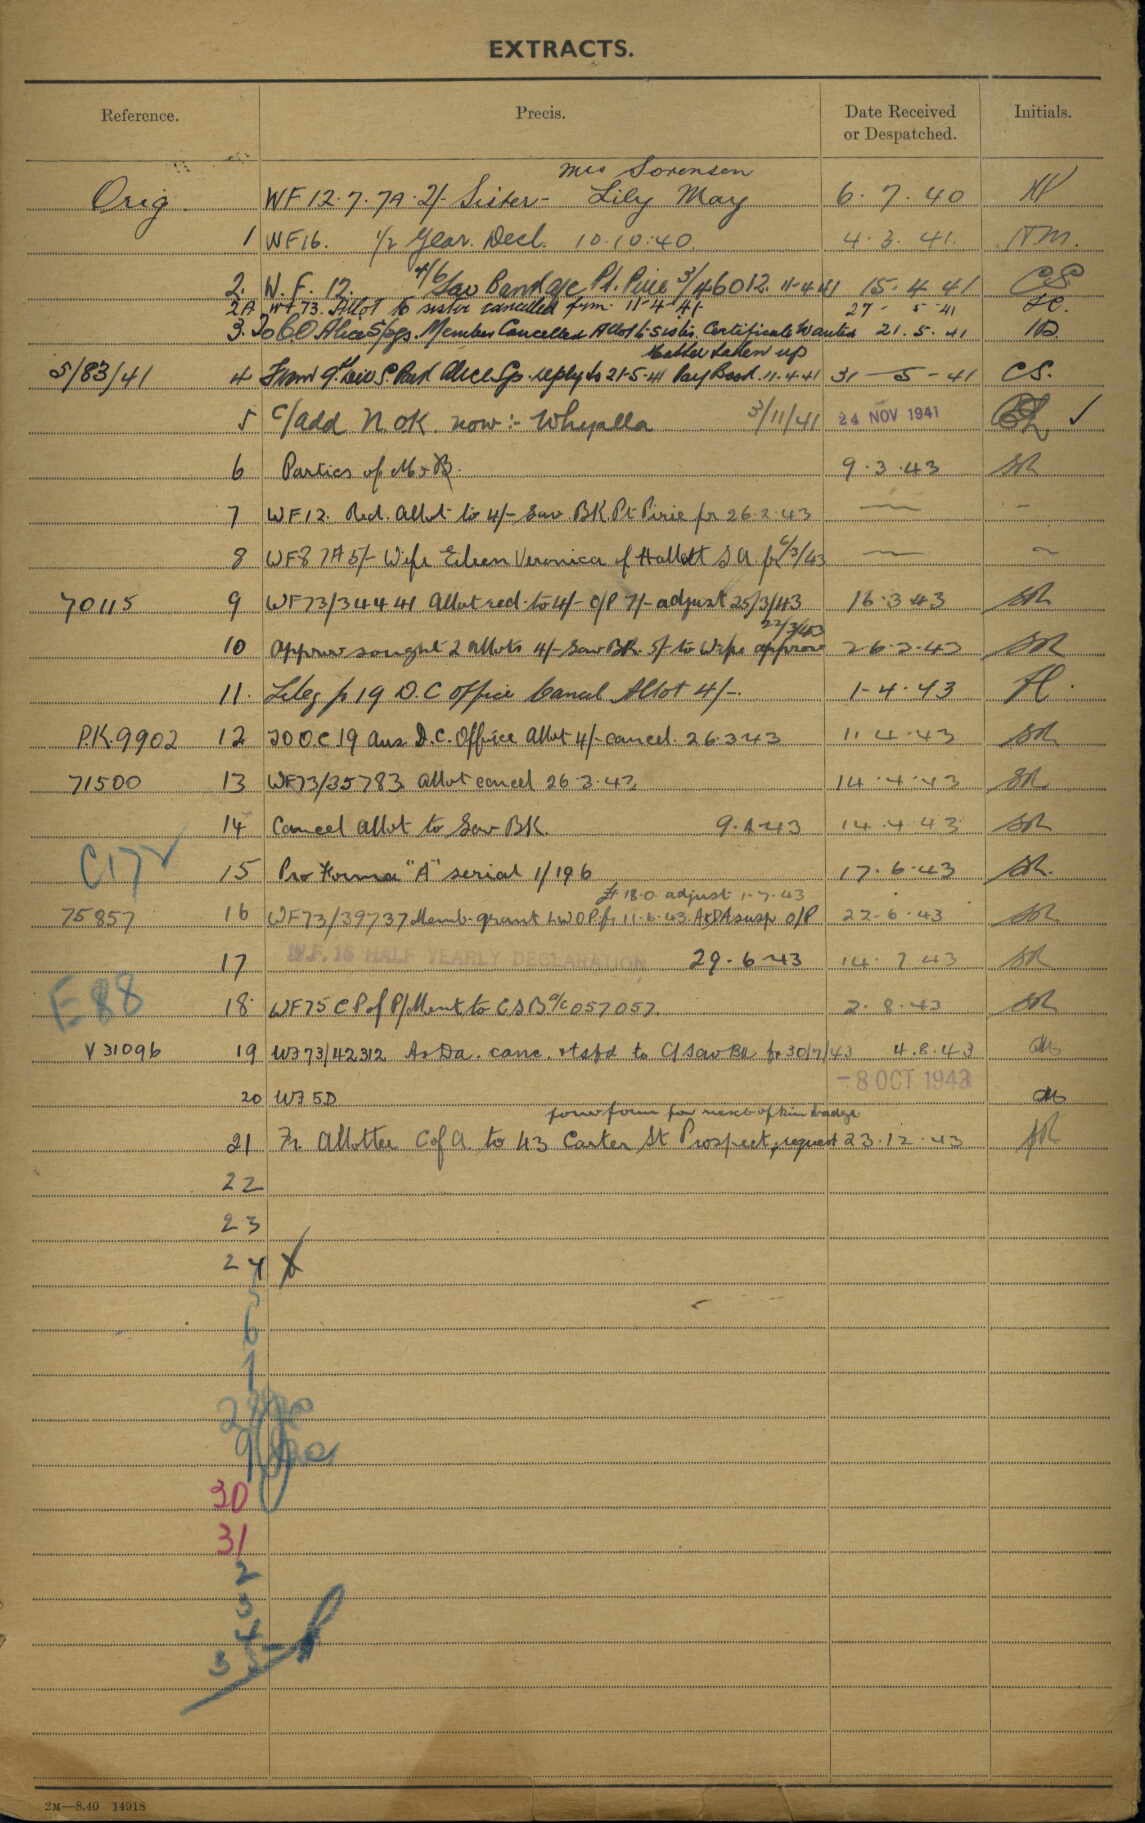 EXTRACTS.
Reference. Precis. Date Received or Despatched. Initials.
Mrs Sorensen
Orig. WF 12.7.7A.2/- Sister- Lily May 6.7.40
1 WF16. 1/2 Year. Decl. 10.10.40. 4.3.41. NM.
2. W.F. 12. 4/6 Sav Bank a/c Pt. Pirie 3/46012. 11-4-41 15.4.41 CS
2A WF73. Allot to sister cancelled frm. 11-4-41 27-5-41
3. To CO Alice Spgs. Member Cancelled Allot to Sister. Certificate Wanted 21.5.41
Matter taken up
5/83/41 4 From 9th S. Alice Sp. reply to 21-5-41 Pay Book. 11-4-41 31-5-41 CS.
5 C/add N OK. now:- Whyalla 3/11/41 24 NOV 1941 ✓
6 Partics of M & B. 9.3.43 SR
7 WF12. Red. Allot to 4/- Sav. BK. Pt Pirie fr 26.2.43 — -
8 WF8 7A 5/- Wife Eileen Veronica of Hallett S A. fr 6/3/43 — ~
70115 9 WF73/34441 Allot red. to 4/- O/P 7/- adjust 25/3/43 16.3.43 SR
22/3/43
10 Approv sought 2 allots 4/- Sav BK. 5/- to Wife approv 26.3.43 SR
11. p 19 D.C office Cancel Allot 4/-. 1-4-43
P.K.9902 12 TO O.C 19 Aus D.C. Office Allot 4/- cancel. 26.3.43 11.4.43 SR
71500 13 WF73/35783 Allot cancel 26.3.43 14.4.43 SR
14 Cancel Allot to Sav BK. 9.4.43 14.4.43 SR
C172
15 Pro Forma "A" serial 1/196 17.6.43 SR.
18.0 adjust 1-7-43
75857 16 WF73/39737 Memb. grant LWOP fr 11.6.43. A&DA susp O/P 22.6.43 SR
17 W.F. 16 HALF YEARLY DECLARATION 29.6.43 14.7.43 SR
E88
18. WF75 C P of P/Ment to C S B a/c 057057. 2.8.43 SR
V31096 19 WF73/42312 A&DA. canc. & tsfd to C/Sav Bk fr 30/7/43 4.8.43
-8 OCT 1943
20 WF5D
form for next of kin badge
21 Fr. Allottee C of A. to 43 Carter St Prospect, request 23.12.43
22
23
24 X
5
6
7
28
9
30
31
2
3
4
35
2M—8.40 14918